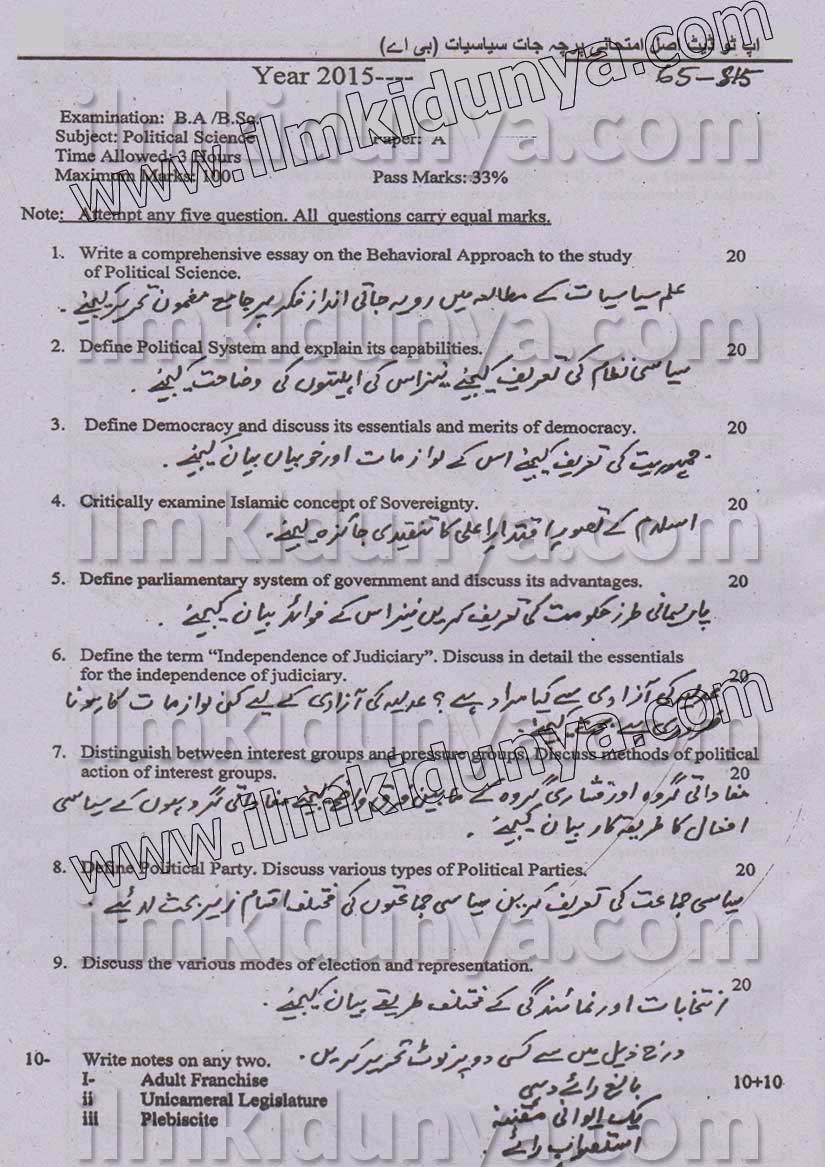 اپ ٹو ڈیٹ اصل امتحانی پرچہ جات سیاسیات (بی اے)
Year 2015----
65-815
Examination: B.A /B.Sc.
Subject: Political Science Paper: A
Time Allowed: 3 Hours
Maximum Marks: 100 Pass Marks: 33%
Note: Attempt any five question. All questions carry equal marks.
1. Write a comprehensive essay on the Behavioral Approach to the study 20
of Political Science.
علم سیاسیات کے مطالعہ میں رویہ جاتی انداز فکر پر جامع مضمون تحریر کیجئے ۔
2. Define Political System and explain its capabilities. 20
سیاسی نظام کی تعریف کیجئے نیز اس کی اہلیتوں کی وضاحت کیجئے ۔
3. Define Democracy and discuss its essentials and merits of democracy. 20
جمہوریت کی تعریف کیجئے اس کے لوازمات اور خوبیاں بیان کیجئے ۔
4. Critically examine Islamic concept of Sovereignty. 20
اسلام کے تصور اقتدارِ اعلی کا تنقیدی جائزہ لیجئے۔
5. Define parliamentary system of government and discuss its advantages. 20
پارلیمانی طرز حکومت کی تعریف کریں نیز اس کے فوائد بیان کیجئے ۔
6. Define the term “Independence of Judiciary”. Discuss in detail the essentials 20
for the independence of judiciary.
عدلیہ کی آزادی سے کیا مراد ہے ؟ عدلیہ کی آزادی کے لیے کن لوازمات کا ہونا
ضروری ہے بحث کیجئے۔
7. Distinguish between interest groups and pressure groups. Discuss methods of political
action of interest groups. 20
مفاداتی گروہ اور فشاری گروہ کے مابین فرق واضح کیجئے مفاداتی گروہوں کے سیاسی
افعال کا طریقہ کار بیان کیجئے ۔
8. Define Political Party. Discuss various types of Political Parties. 20
سیاسی جماعت کی تعریف کریں سیاسی جماعتوں کی مختلف اقسام زیر بحث لائیے ۔
9. Discuss the various modes of election and representation. 20
انتخابات اور نمائندگی کے مختلف طریقے بیان کیجئے ۔
درج ذیل میں سے کسی دو پر نوٹ تحریر کریں ۔
10- Write notes on any two.
I- Adult Franchise بالغ رائے دہی 10+10
ii Unicameral Legislature یک ایوانی مقننہ
iii Plebiscite استصواب رائے ۔
www.ilmkidunya.com
www.ilmkidunya.com
ilmkidunya.com
ilmkidunya.com
ilmkidunya.com
ilmkidunya.com
ilmkidunya.com
ilmkidunya.com